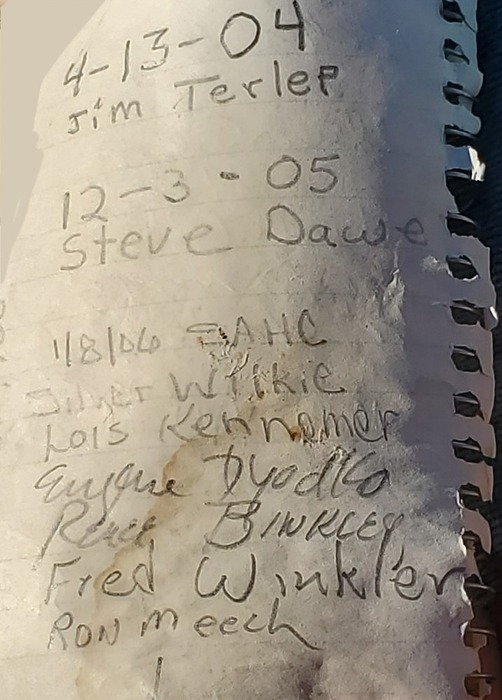 4-13-04
Jim Terlep
12-3-05
Steve Dawe
1/8/06 SAHC
Wilkie
Lois Kennomer
Eugene Dyodko
BINKLEY
Fred Winkler
RON Meech